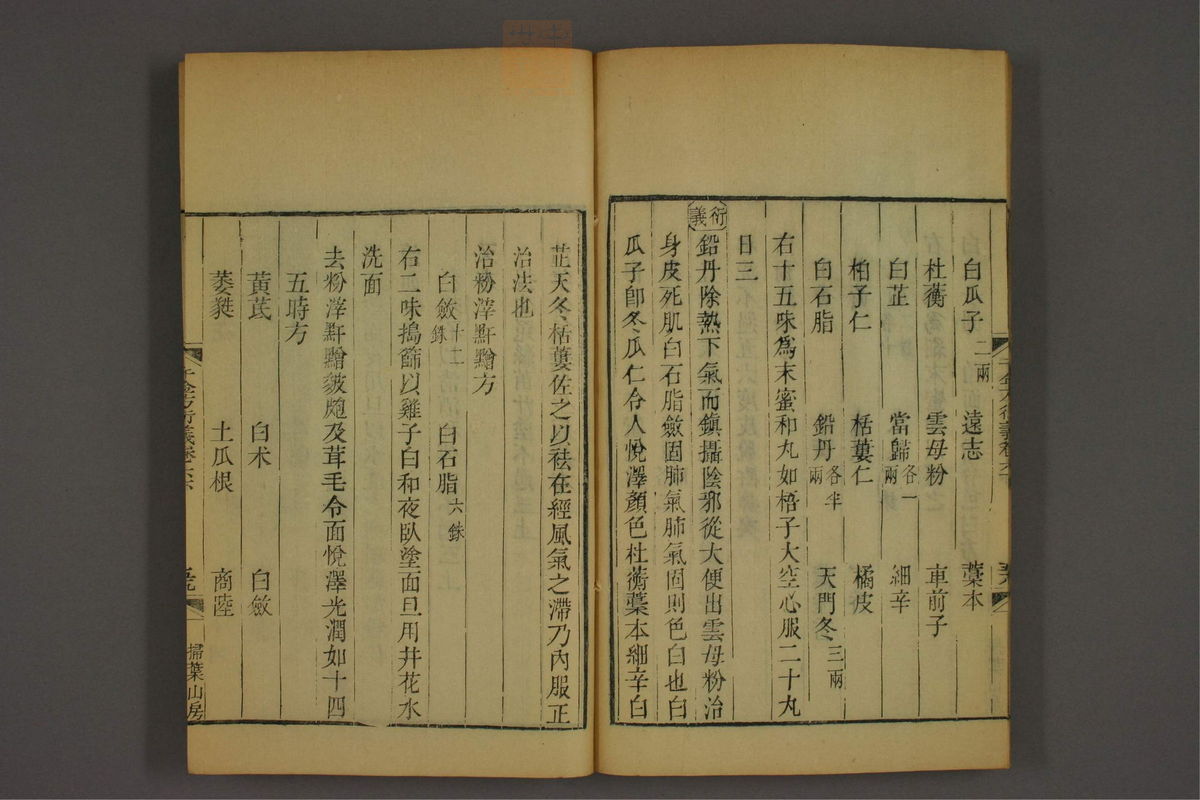 白瓜子二兩　遠志　藁本
杜蘅　雲母粉　車前子
白芷　當歸各一兩　細辛
柏子仁　栝蔞仁　橘皮
白石脂　鉛丹各半兩　天門冬三兩
右十五味爲末蜜和丸如梧子大空心服二十丸
日三
衍義
鉛丹除熱下氣而鎭攝陰邪從大便出雲母粉治
身皮死肌白石脂斂固肺氣肺氣固則色白也白
瓜子卽冬瓜仁令人悅澤顏色杜蘅藁本細辛白
芷天冬栝蔞佐之以袪在經風氣之滯乃內服正
治法也
治粉滓䵟䵴方
白斂十二銖　白石脂六銖
右二味搗篩以雞子白和夜臥塗面旦用井花水
洗面
去粉滓䵟䵴皴皰及茸毛令面悅澤光潤如十四
五時方
黃芪　白朮　白斂
萎蕤　土瓜根　商陸
千金方衍義卷六
掃葉山房